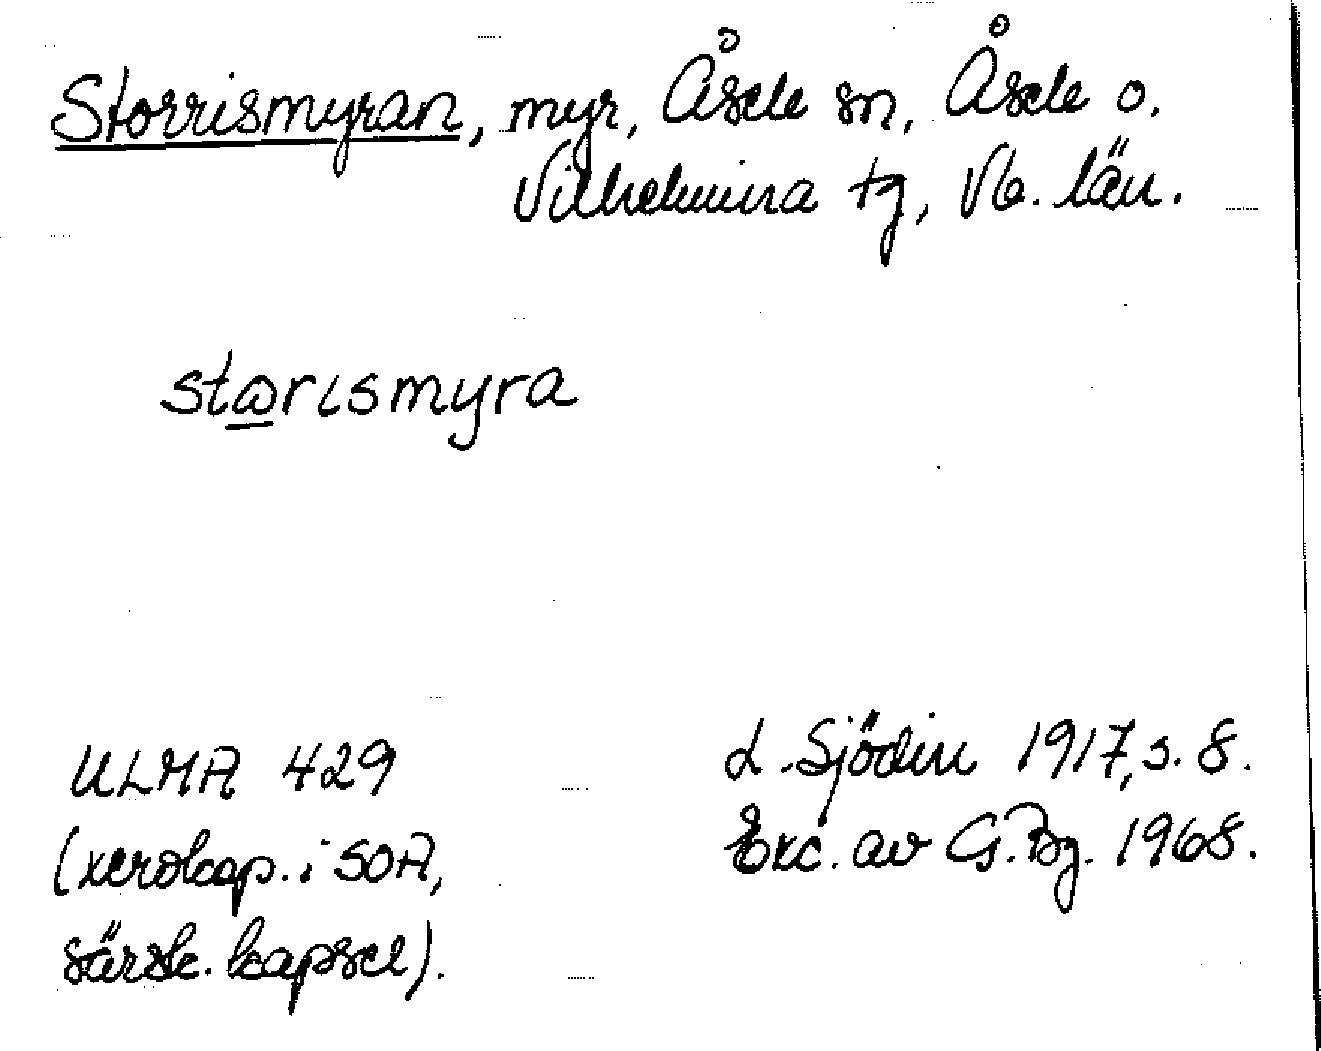 Storrismyran, myr, Åsele sn, Åsele o.
Vilhelmina tg, Vb. län.
stɷrısmyra
ULMA 429
(xerokop. i SOA,
särsk. kapsel).
L. Sjödin 1917, s. 8.
Exc. av G. Bg. 1968.